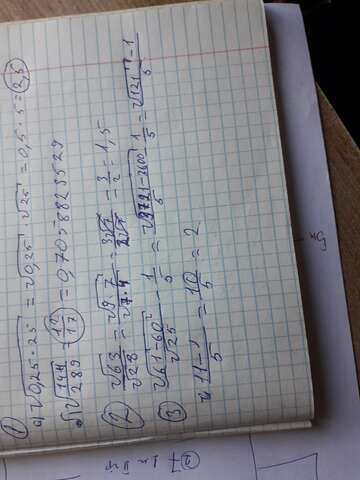 1
а) √0,25·25 = √0,25 · √25 = 0,5 · 5 = 2,5
б) √144/289 = 12/17 = 0,7058823529
2 √63/√28 = √9·7/√7·4 = 3√7/2√7 = 3/2 = 1,5
3 √61²-60²/√25 - 1/5 = √3721-3600/5 - 1/5 = √121-1/5
11-1/5 = 10/5 = 2